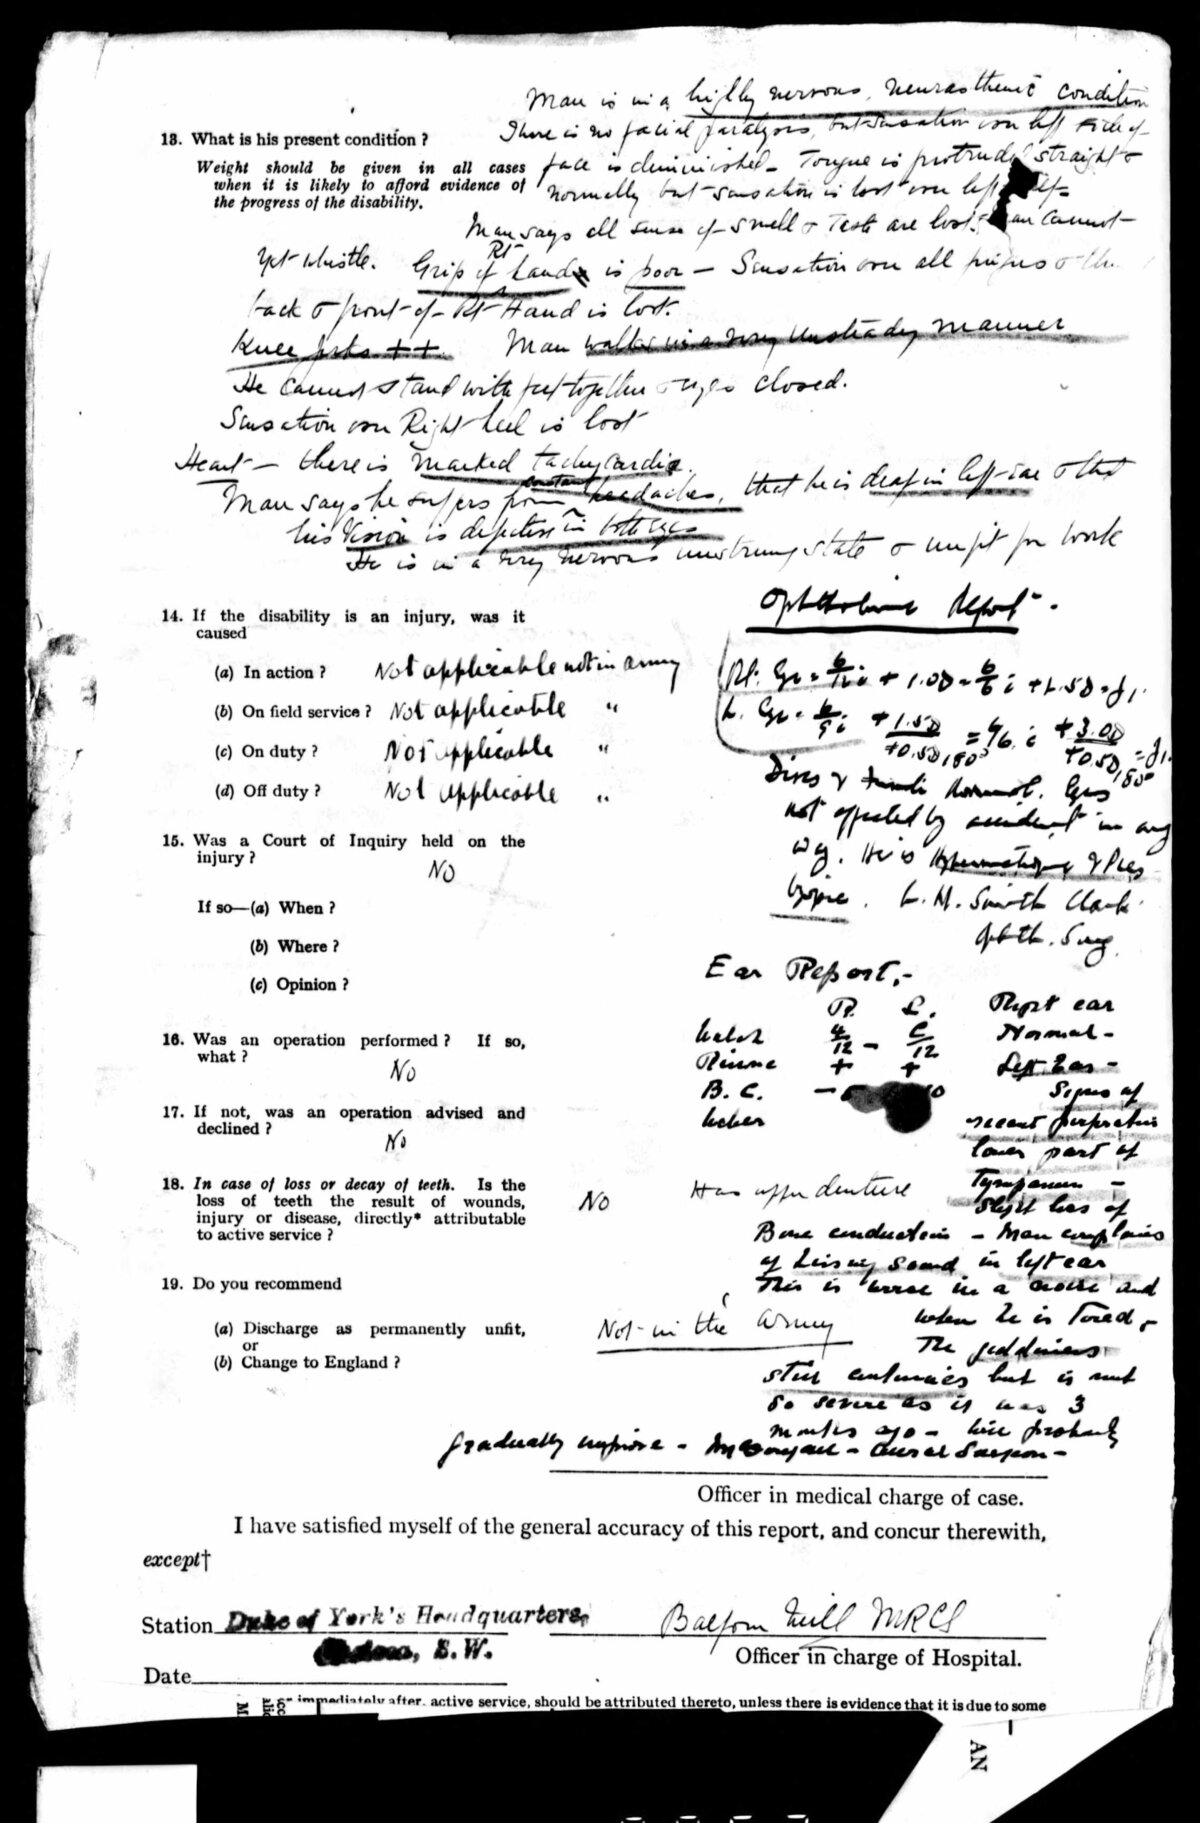 Man is in a highly nervous, neurasthenic condition
13. What is his present condition ?
There is no facial paralysis, but sensation over left side of
Weight should be given in all cases
when it is likely to afford evidence of
the progress of the disability.
face is diminished - Tongue is protruded straight &
normally but sensation is lost over left
Man says all sense of smell & taste are lost. cannot
yet whistle. Grip of Rt hand is poor - Sensation over all fingers &
back & front of Rt Hand is lost.
Knee jerks ++. Man walks in a very unsteady manner
He cannot stand with feet together & eyes closed.
Sensation over Right heel is lost
Heart - there is marked tachycardia.
Man says he suffers from constant headaches, that he is deaf in left ear & that
his Vision is defective in both eyes
He is in a very nervous unstrung state & unfit for work
14. If the disability is an injury, was it
caused
(a) In action ? Not applicable not in army
(b) On field service ? Not applicable "
(c) On duty ? Not applicable "
(d) Off duty ? Not applicable "
15. Was a Court of Inquiry held on the
injury ?
No
If so—(a) When ?
(b) Where ?
(c) Opinion ?
16. Was an operation performed ? If so,
what ?
No
17. If not, was an operation advised and
declined ?
No
18. In case of loss or decay of teeth. Is the
loss of teeth the result of wounds,
injury or disease, directly* attributable
to active service ?
No Has upper denture
19. Do you recommend
(a) Discharge as permanently unfit,
or
(b) Change to England ?
Not in the army
Report.
Rt. Eye = 6/12 i + 1.0D = 6/6 i + 1.5D = J1.
L. Eye = 6/9 i +1.5D/+0.5D,180° = 6/6. i +3.0D/+0.5D,180° = J1.
Discs & Fundi Normal. Eyes
not affected by accident in any
way. He is &
L. H. Smith Clark
Ophth. Surg.
Ear Report.-
R. L.
Watch 4/12 - C/12
Rinne + +
B. C. -
Weber
Right ear
Normal -
Left Ear -
Signs of
recent perforation
lower part of
Tympanum -
Slight loss of
Bone conduction - Man complains
of hissing sound in left ear
This is worse in a noise and
when he is tired -
The giddiness
still continues but is not
so severe as it was 3
months ago - will probably
gradually improve - - Aural Surgeon -
Officer in medical charge of case.
I have satisfied myself of the general accuracy of this report, and concur therewith,
except†
Station Duke of York's Headquarters,
S.W.
Balfour Neill MRCS
Officer in charge of Hospital.
Date
immediately after, active service, should be attributed thereto, unless there is evidence that it is due to some
AN